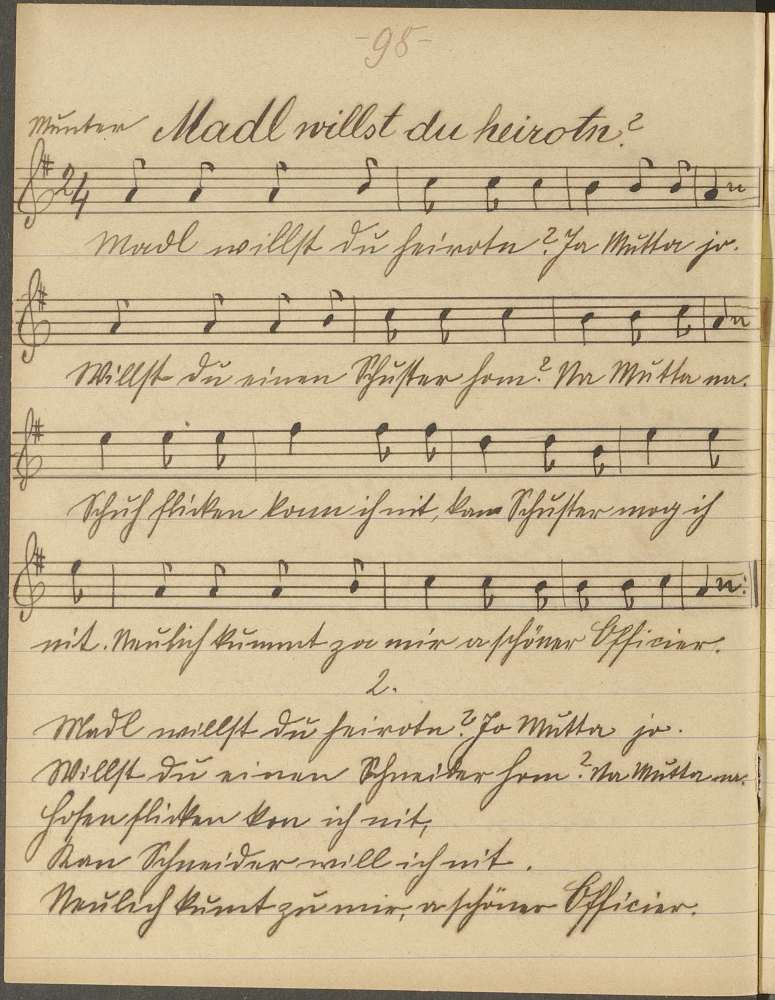 -98-
Munter Madl willst du heirotn?
2/4
Madl willst du heirotn? Ja Mutta jo.
Willst du einen Schuster hom? Na Mutta na.
Schuh flicken konn ich nit, kan Schuster mog ich
nit. Neulich kummt za mir a schöner Officier.
2.
Madl willst du heirotn? Jo Mutta jo.
Willst du einen Schneider hom? Na Mutta na.
Hosen flicken kon ich nit,
Kan Schneider will ich nit.
Neulich kumt zu mir, a schöner Officier.